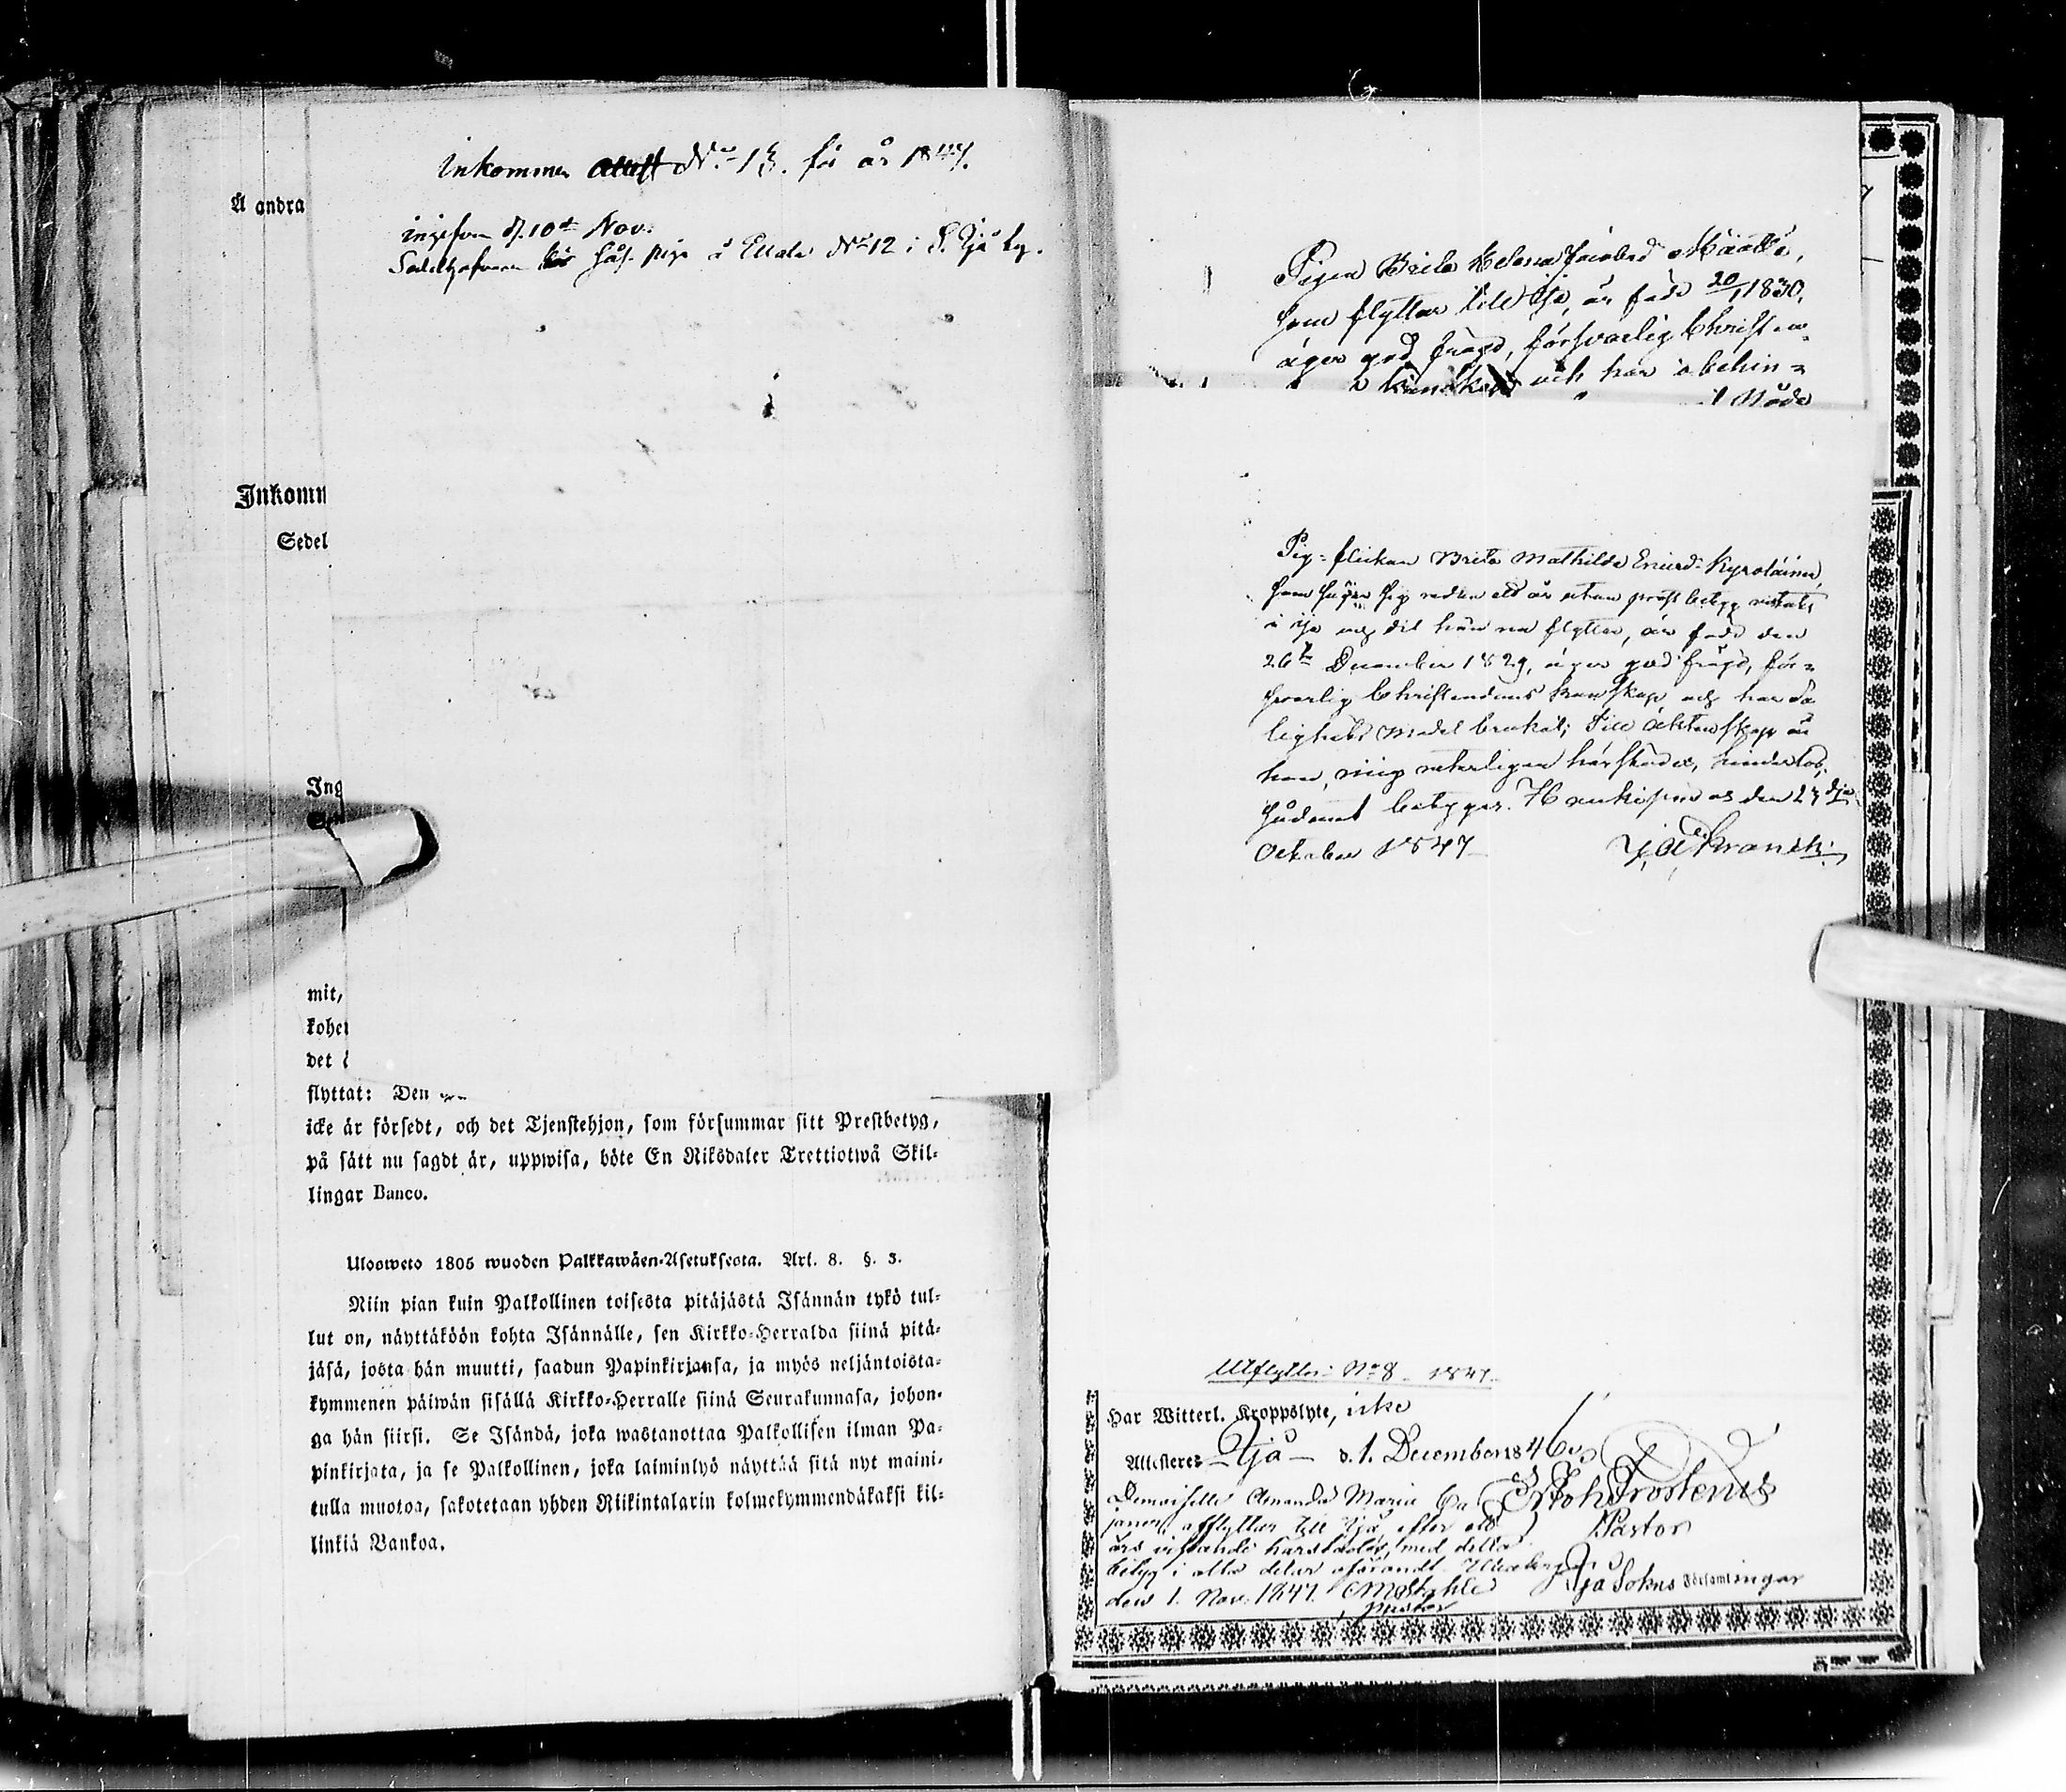 Å andra
inkommen attest N:o 13. för år 1847.
ingifven d. 10de Nov.
Sedelhafvaren piga å N:o 12 i Ijå by.
Inkomm
Sedel
Ing
mit,
kohet
det
flyttat: Den
icke är försedt, och det Tjenstehjon, som försummar sitt Prestbetyg,
på sätt nu sagdt är, uppwisa, böte En Riksdaler Trettiotwå Skil-
lingar Banco.
Ulosweto 1805 wuoden Palkkawäen-Asetuksesta. Art. 8. §. 3.
Niin pian kuin Palkollinen toisesta pitäjästä Isännän tykö tul-
lut on, näyttäköön kohta Isännälle, sen Kirkko-Herralda siinä pitä-
jäsä, josta hän muutti, saadun Papinkirjansa, ja myös neljäntoista-
kymmenen päiwän sisällä Kirkko-Herralle siinä Seurakunnasa, johon-
ga hän siirsi. Se Isändä, joka wastanottaa Palkollisen ilman Pa-
pinkirjata, ja se Palkollinen, joka laiminlyö näyttää sitä nyt maini-
tulla muotoa, sakotetaan yhden Riikintalarin kolmekymmendäkaksi kil-
linkiä Bankoa.
Pigan Brita Helena Määttä,
som flyttar till Ijo, är född 20/1 1830,
äger god frägd, försvarlig Christen-
kunskap och har obehin-
Pig-flickan Brita Mathilda Ericsd: Kyroläinen,
som säger sig redan ett år utan prestbetyg vistats
i Ijo och dit härm flyttar, är född den
26te December 1829, äger god frägd, för-
svarlig Christendoms kunskap och har Sa
lighets Medel brukat; Till äktenskap är
hon, mig veterligen härstädes, hinderlös;
sådant betygar. Haukipudas den 27dje
October 1847
Utflyttn: No 8 1847.
Har Witterl. Kroppslyte, icke
Attesteres Ijå d. 1. December 1846
Demoiselle Amanda Maria
afflyttar till Ijå, efter ett
års vistande härstädes, med detta
betyg i alla delar oförändt.
den 1. Nov. 1847.
Pastor
Pastor
Ijå Sokns Församlingar